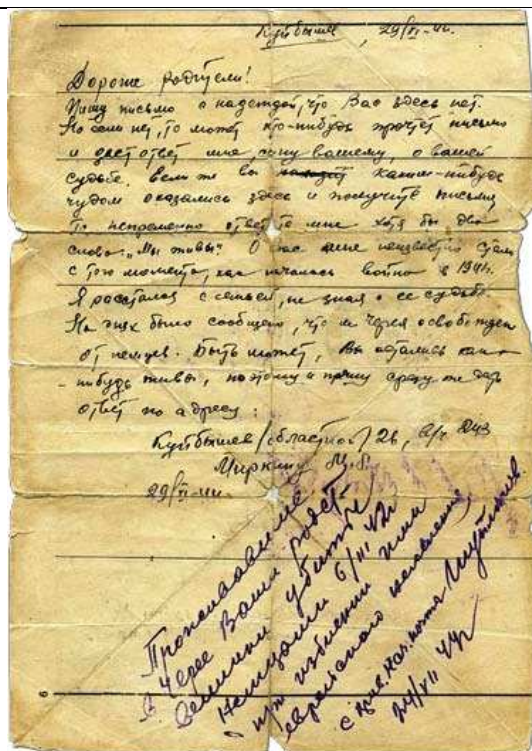 Куйбышев, 29/VI-44г.
Дорогие родители!
Пишу письмо с надеждой, что Вас здесь нет.
Но если нет, то может кто-нибудь прочтёт письмо
и даст ответ мне, сыну вашему, о вашей
судьбе. Если же вы каким-нибудь
чудом оказались здесь и получите письмо
то непременно ответьте мне хотя бы два
слова: "Мы живы". О вас мне неизвестно
с того момента, как началась война в 1941г.
Я расстался с семьей, не зная о ее судьбе.
На днях было сообщено, что м. Черея освобожден
от немцев. Быть может, Вы остались как-
-нибудь живы, поэтому я прошу сразу же дать
ответ по адресу:
Куйбышев (областной) 26, п/я
Миркину М.
29/VI-44г.
Проживавшие
в Черее Ваши родст
венники убиты
немцами 6/III 42г
при избиении ими
еврейского населения
с прив. нач. почты
24/VII 44г
6